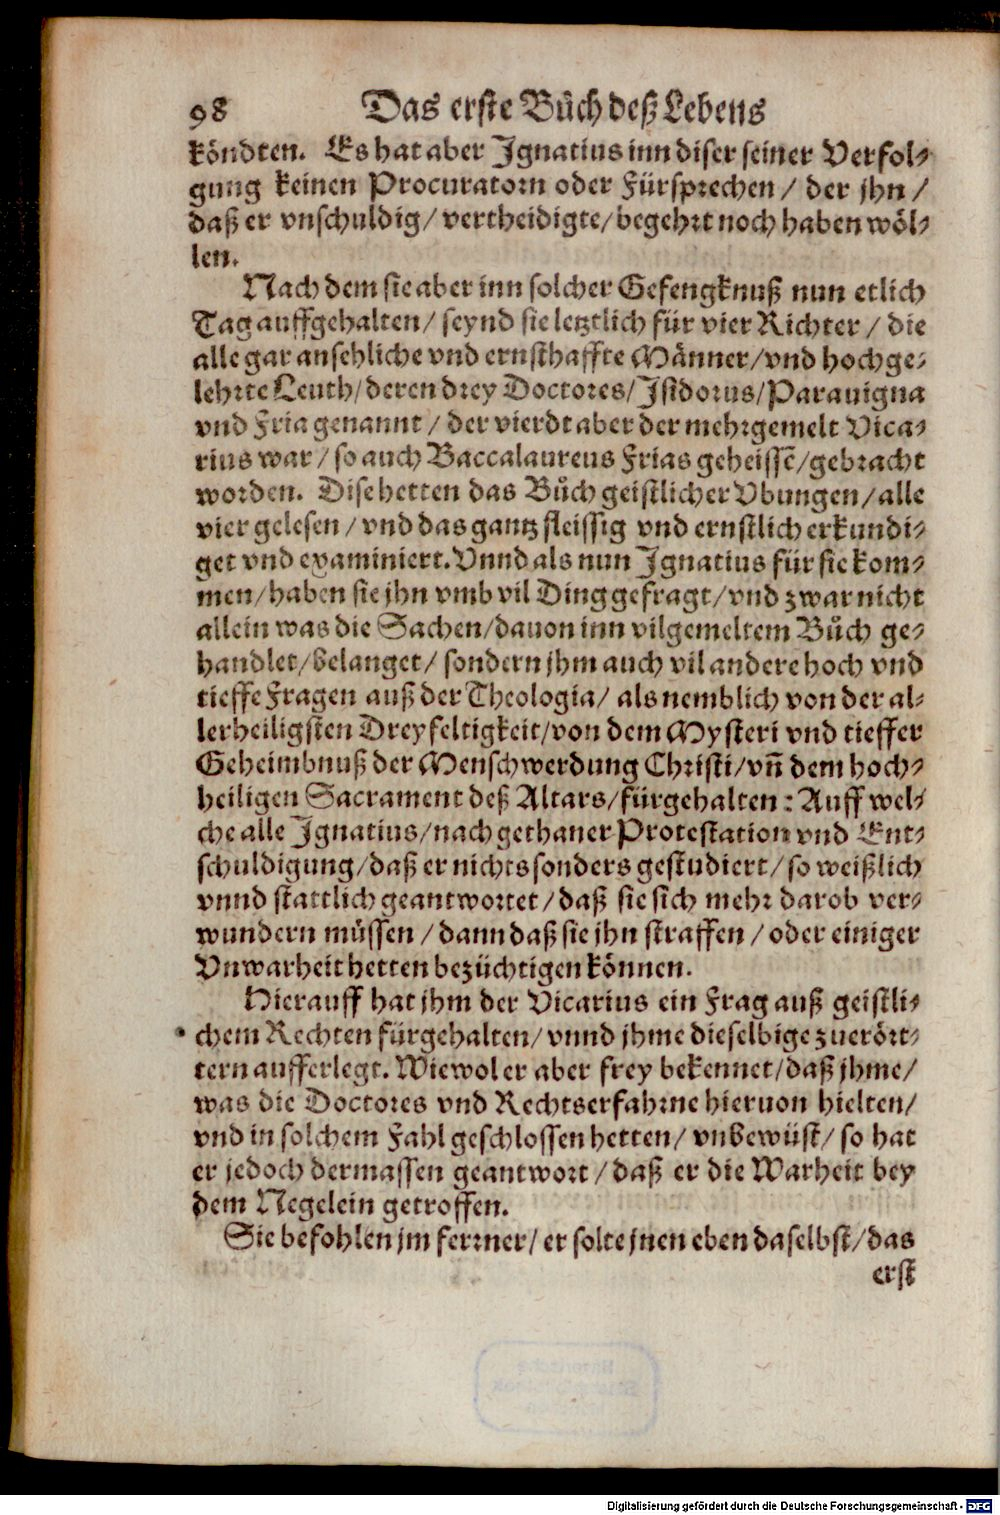 98 Das erste Bůch deß Lebens
köndten. Es hat aber Ignatius inn diser seiner Verfol⸗
gung keinen Procuratorn oder Fürsprechen / der jhn /
daß er vnschuldig / vertheidigte / begehrt noch haben wöl⸗
len.
Nach dem sie aber inn solcher Gefengknuß nun etlich
Tag auffgehalten / seynd sie letztlich für vier Richter / die
alle gar ansehliche vnd ernsthaffte Männer / vnd hochge⸗
lehrte Leuth / deren drey Doctores / Isidorus / Parauigna
vnd Fria genannt / der vierdt aber der mehrgemelt Vica⸗
rius war / so auch Baccalaureus Frias geheissẽ / gebracht
worden. Dise hetten das Bůch geistlicher Vbungen / alle
vier gelesen / vnd das gantz fleissig vnd ernstlich erkundi⸗
get vnd examiniert. Vnnd als nun Ignatius für sie kom⸗
men / haben sie jhn vmb vil Ding gefragt / vnd zwar nicht
allein was die Sachen / dauon inn vilgemeltem Bůch ge⸗
handlet / belanget / sondern jhm auch vil andere hoch vnd
tieffe Fragen auß der Theologia / als nemblich von der al⸗
lerheiligsten Dreyfeltigkeit / von dem Mysteri vnd tieffer
Geheimbnuß der Menschwerdung Christi / vñ dem hoch⸗
heiligen Sacrament deß Altars / fürgehalten : Auff wel⸗
che alle Ignatius / nach gethaner Protestation vnd Ent⸗
schuldigung / daß er nichts sonders gestudiert / so weißlich
vnnd stattlich geantwortet / daß sie sich mehr darob ver⸗
wundern müssen / dann daß sie jhn straffen / oder einiger
Vnwarheit hetten bezüchtigen können.
Hierauff hat jhm der Vicarius ein Frag auß geistli⸗
chem Rechten fürgehalten / vnnd jhme dieselbige zuerört⸗
tern aufferlegt. Wiewol er aber frey bekennet / daß jhme /
was die Doctores vnd Rechtserfahrne hieruon hielten /
vnd in solchem Fahl geschlossen hetten / vnbewüst / so hat
er jedoch dermassen geantwort / daß er die Warheit bey
dem Negelein getroffen.
Sie befohlen jm ferrner / er solte jnen eben daselbst / das
erst
Digitalisierung gefördert durch die Deutsche Forschungsgemeinschaft - DFG